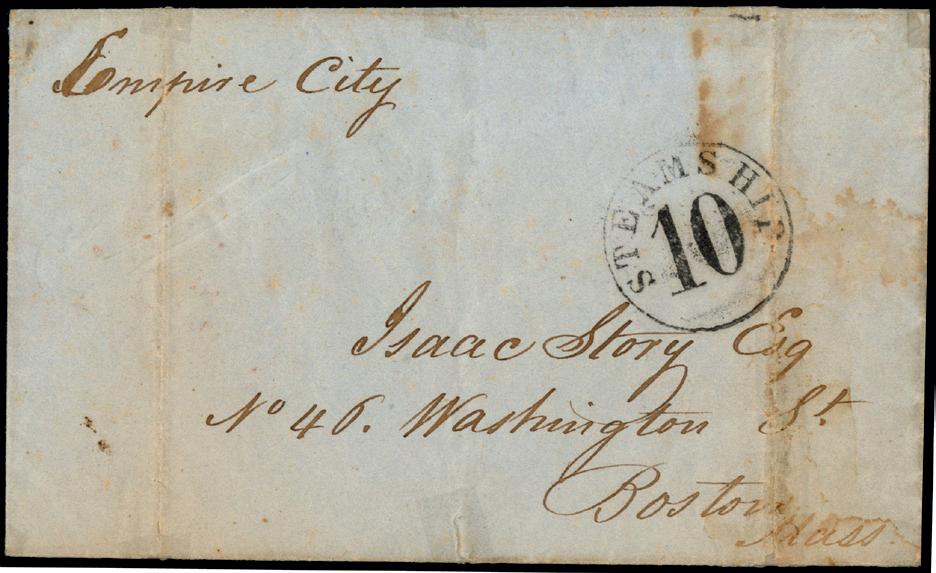 Empire City
STEAMSHIP
10
Isaac Story Esq
No 46. Washington St.
Boston
Mass